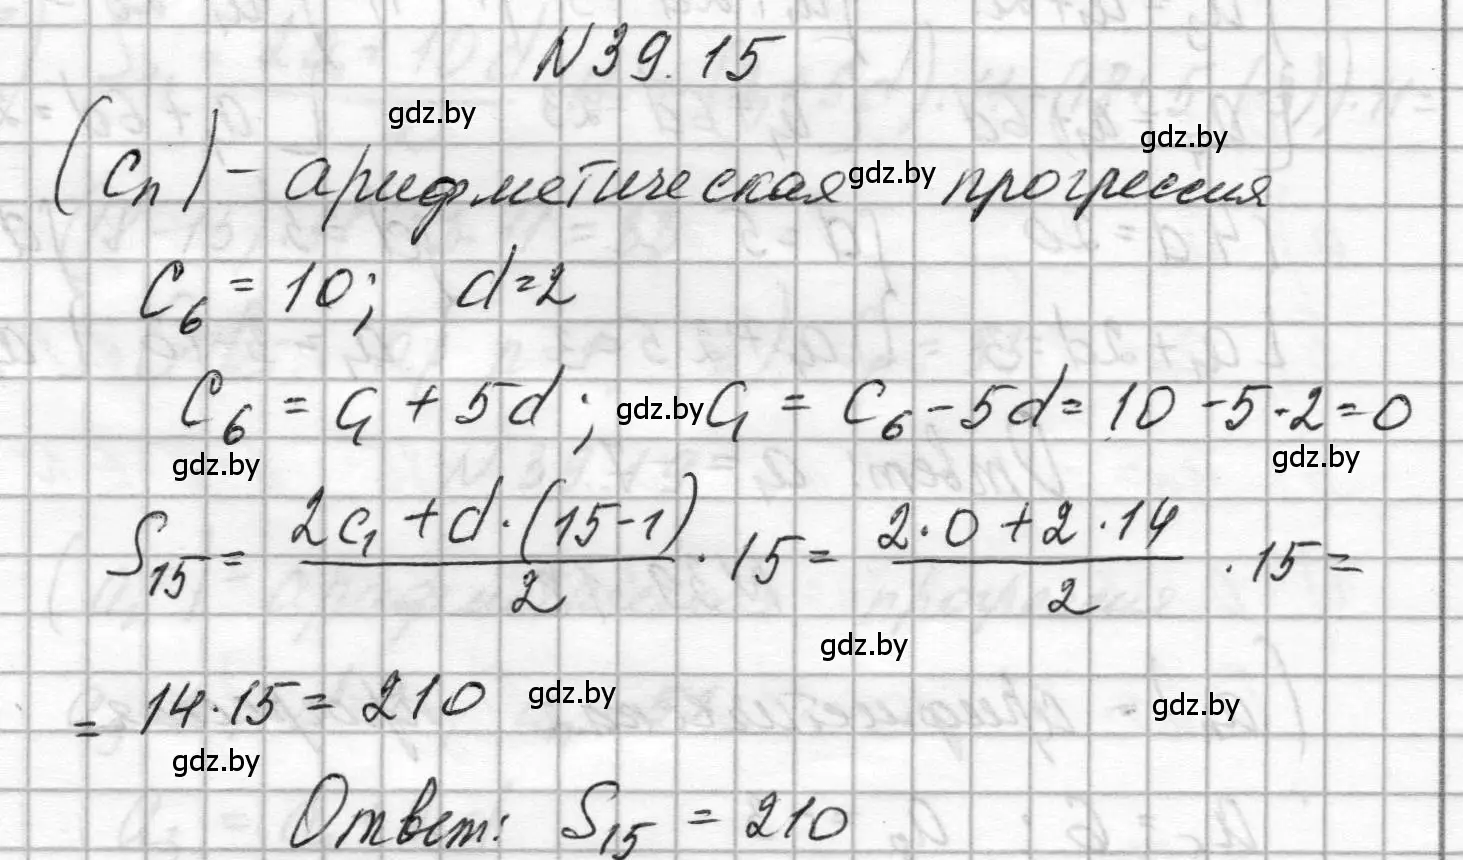 N 39.15
gdz.by
gdz.by
(Cₙ) - арифметическая gdz.by прогрессия
C₆ = 10; d=2
C₆ = C₁ + 5d; gdz.by C₁ = C₆ - 5d = 10 - 5·2 = 0
gdz.by
gdz.by
S₁₅ = (2C₁ + d·(15-1))/2 · 15 = (2·0 + 2·14)/2 · 15 =
gdz.by
= 14·15 = 210 gdz.by
gdz.by
gdz.by
Ответ: S₁₅ = 210